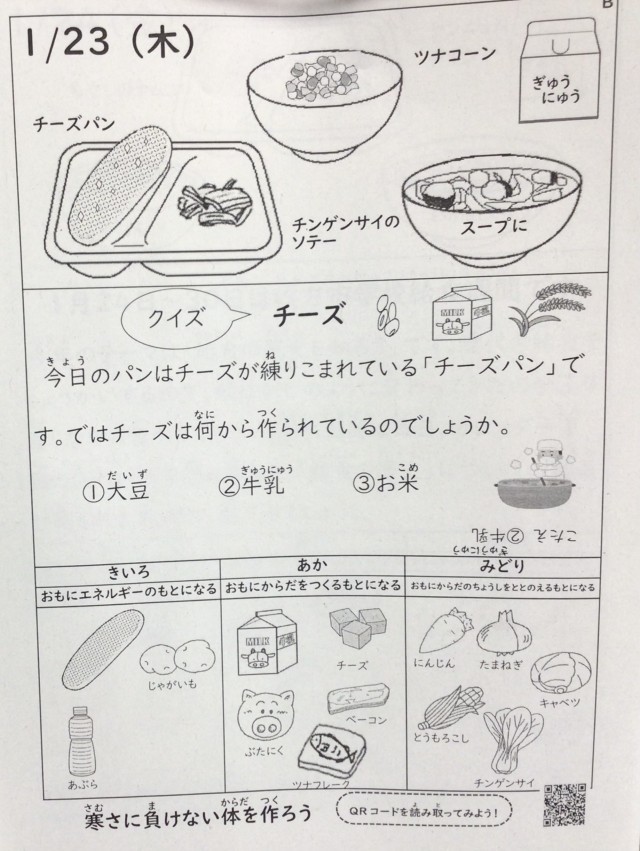 B
1/23（木）
ツナコーン
ぎゅう
にゅう
チーズパン
チンゲンサイの
ソテー
スープに
クイズ
チーズ
MILK
きょう ね
今日のパンはチーズが練りこまれている「チーズパン」で
なに つく
す。ではチーズは何から作られているのでしょうか。
だいず ぎゅうにゅう こめ
①大豆 ②牛乳 ③お米
ぎゅうにゅう
こたえ ②牛乳
きいろ あか みどり
おもにエネルギーのもとになる おもにからだをつくるもとになる おもにからだのちょうしをととのえるもとになる
じゃがいも
あぶら
MILK
チーズ
ベーコン
ぶたにく
ツナフレーク
にんじん
たまねぎ
キャベツ
とうもろこし
チンゲンサイ
さむ ま からだ つく
寒さに負けない体を作ろう
よ と
QRコードを読み取ってみよう！